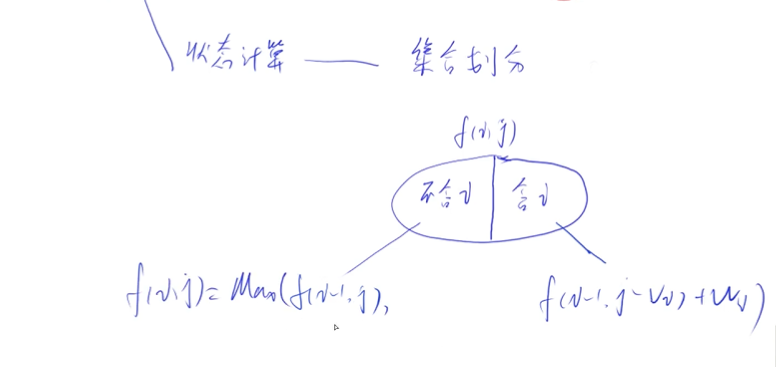 状态计算 —— 集合划分
f(i,j)
不含i 含i
f(i,j)=Max(f(i-1,j), f(i-1,j-Vi)+Wi)